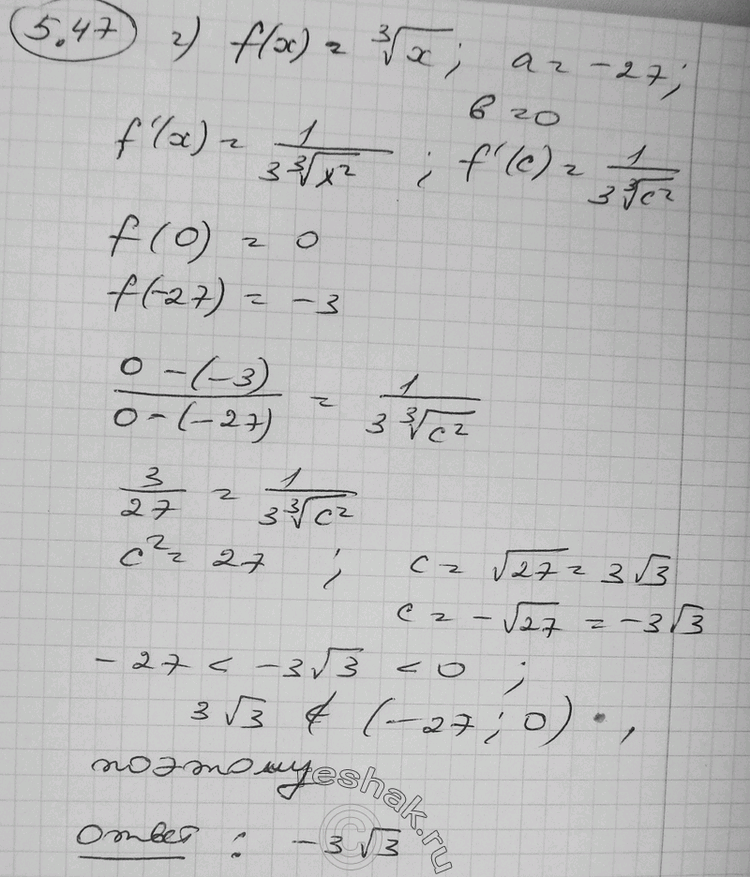 5.47 г) f(x) = ∛x; a = -27;
в = 0
f'(x) = 1/(3∛x²); f'(c) = 1/(3∛c²)
f(0) = 0
f(-27) = -3
(0-(-3))/(0-(-27)) = 1/(3∛c²)
3/27 = 1/(3∛c²)
c² = 27; c = √27 = 3√3
c = -√27 = -3√3
-27 < -3√3 < 0;
3√3 ∉ (-27; 0),
поэтому
Ответ: -3√3
©reshak.ru